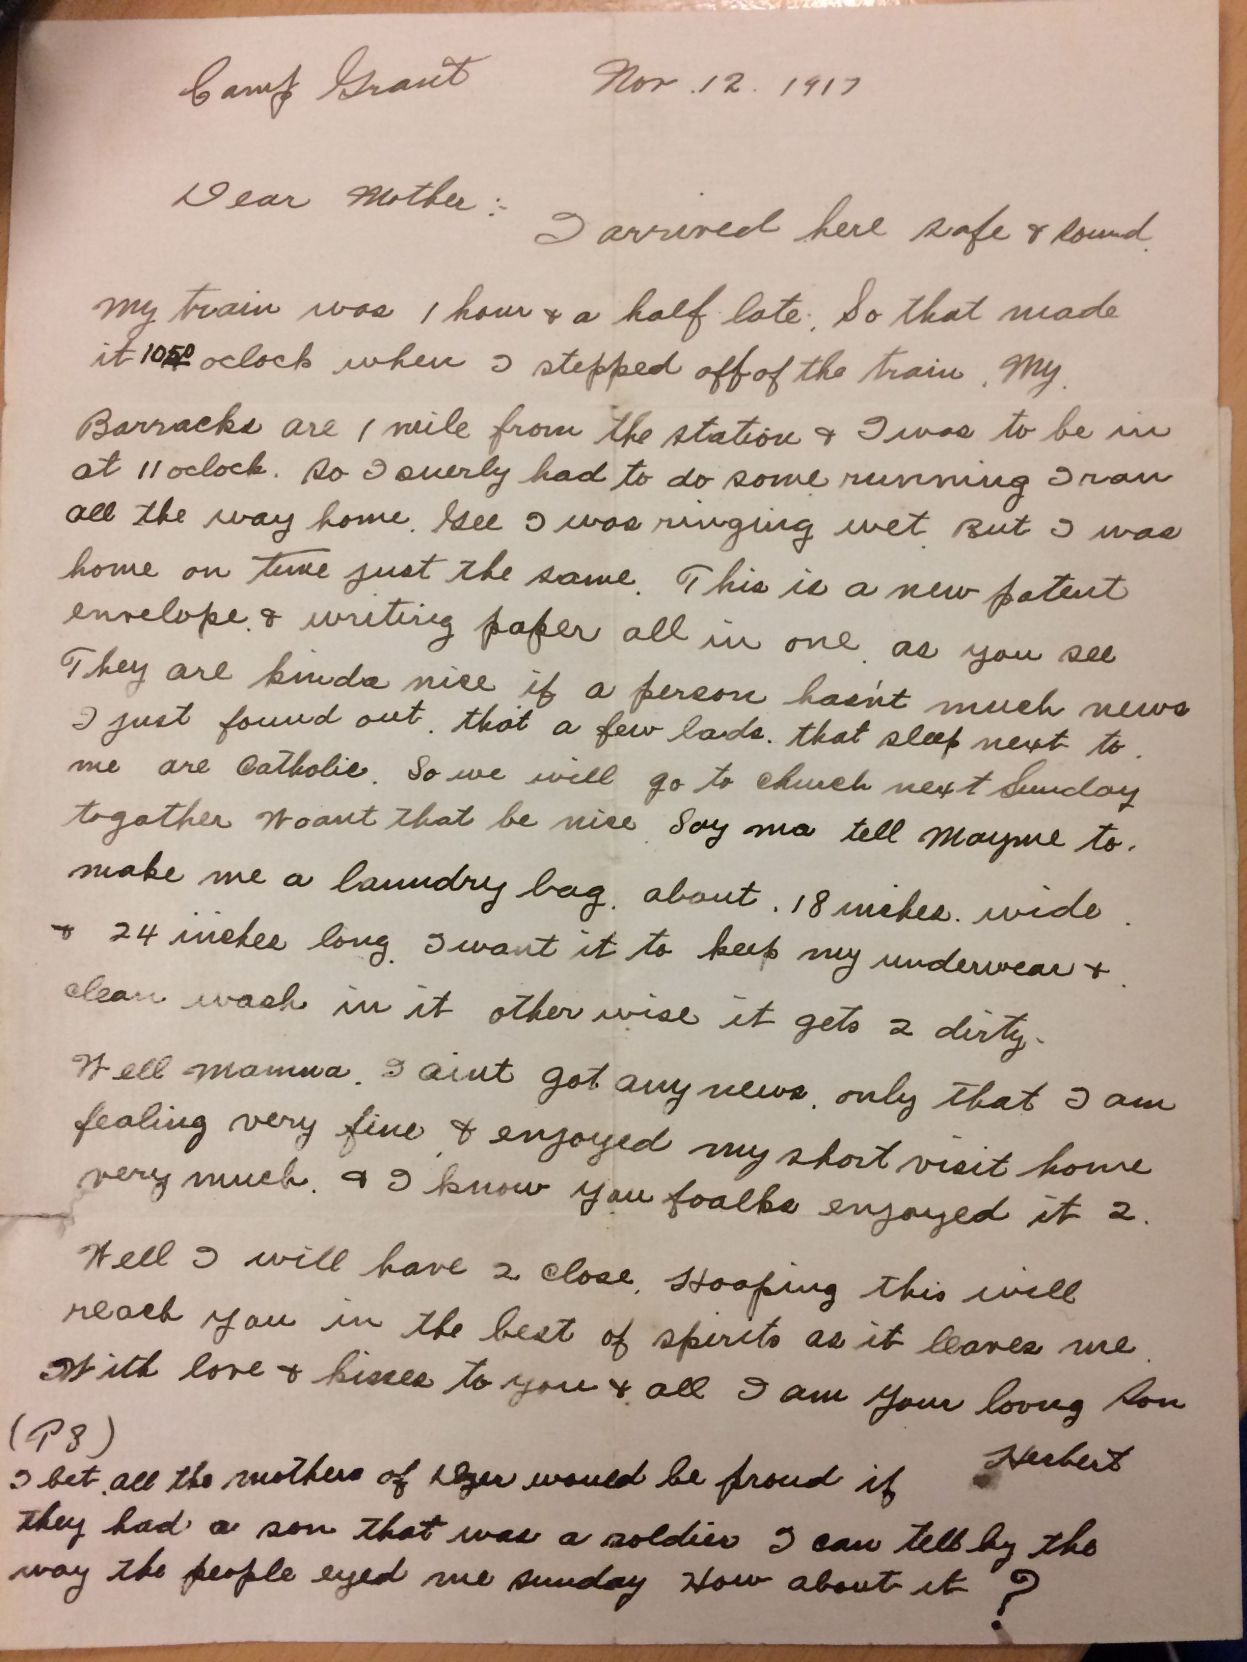 Camp Grant Nov. 12. 1917
Dear Mother :-
I arrived here safe & sound.
My train was 1 hour & a half late. So that made
it 1050 oclock when I stepped off of the train. My.
Barracks are 1 mile from the station & I was to be in
at 11 oclock. So I suerly had to do some running I ran
all the way home. Gee I was ringing wet. But I was
home on time just the same. This is a new patent
envelope. & writing paper all in one. as you see
They are kinda nice if a person hasn't much news
I just found out. that a few lads. that sleep next to.
me are Catholic. So we will go to church next Sunday
togather Woant that be nice. Say ma tell Mayme to.
make me a laundry bag. about. 18 inches. wide.
& 24 inches long. I want it to keep my underwear &.
clean wash in it other wise it gets 2 dirty.
Well Mamma. I aint got any news. only that I am
fealing very fine. & enjoyed my short visit home
very much. & I know you foalks enjoyed it 2.
Well I will have 2 close. Hooping this will
reach you in the best of spirits as it leaves me.
With love & kisses to you & all I am your loving Son
Herbert
(PS)
I bet. all the mothers of would be proud if
they had a son that was a soldier I can tell by the
way the people eyed me sunday How about it ?